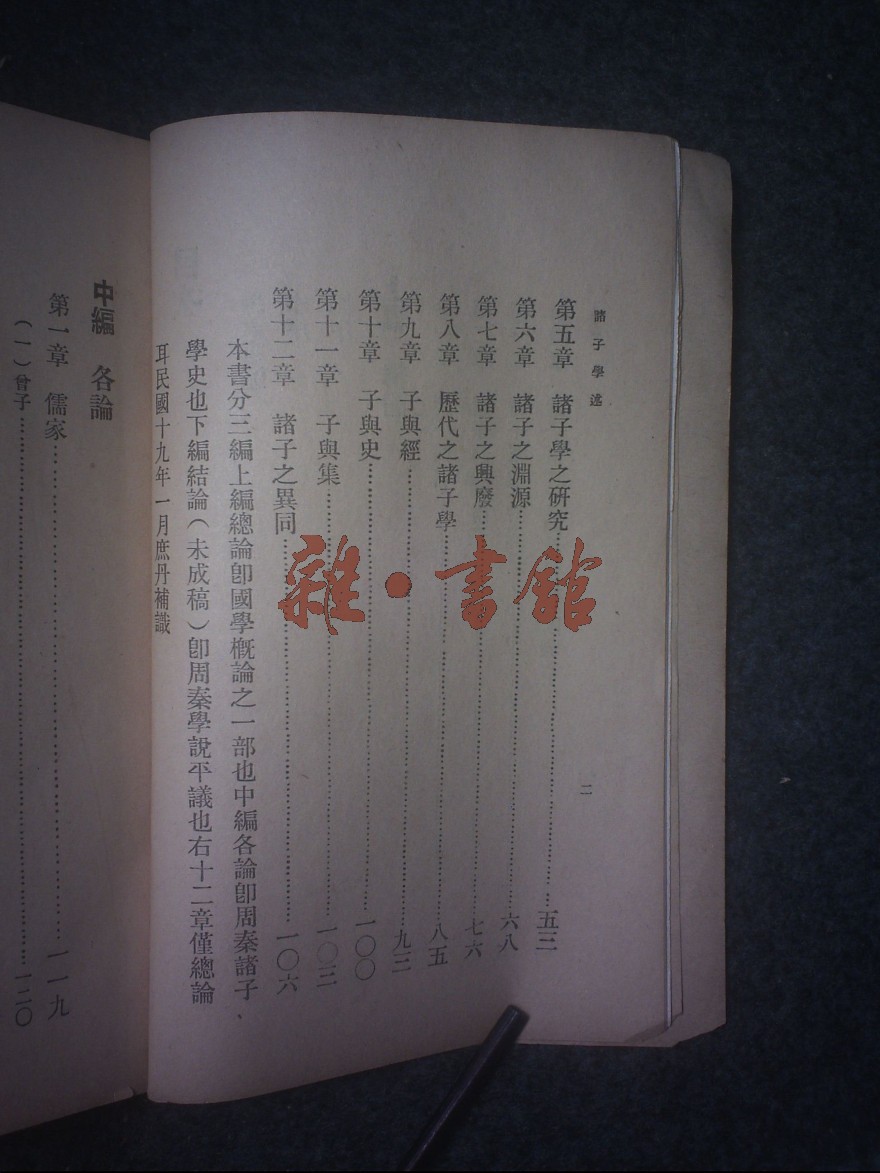 諸子學述
二
第五章 諸子學之研究……五三
第六章 諸子之淵源……六八
第七章 諸子之興廢……七六
第八章 歷代之諸子學……八五
第九章 子與經……九三
第十章 子與史……一〇〇
第十一章 子與集……一〇三
第十二章 諸子之異同……一〇六
本書分三編上編總論卽國學槪論之一部也中編各論卽周秦諸子、
學史也下編結論(未成稿)卽周秦學說平議也右十二章僅總論
耳民國十九年一月庶丹補識
中編 各論
第一章 儒家……一一九
(一)曾子……一二〇
雜·書館